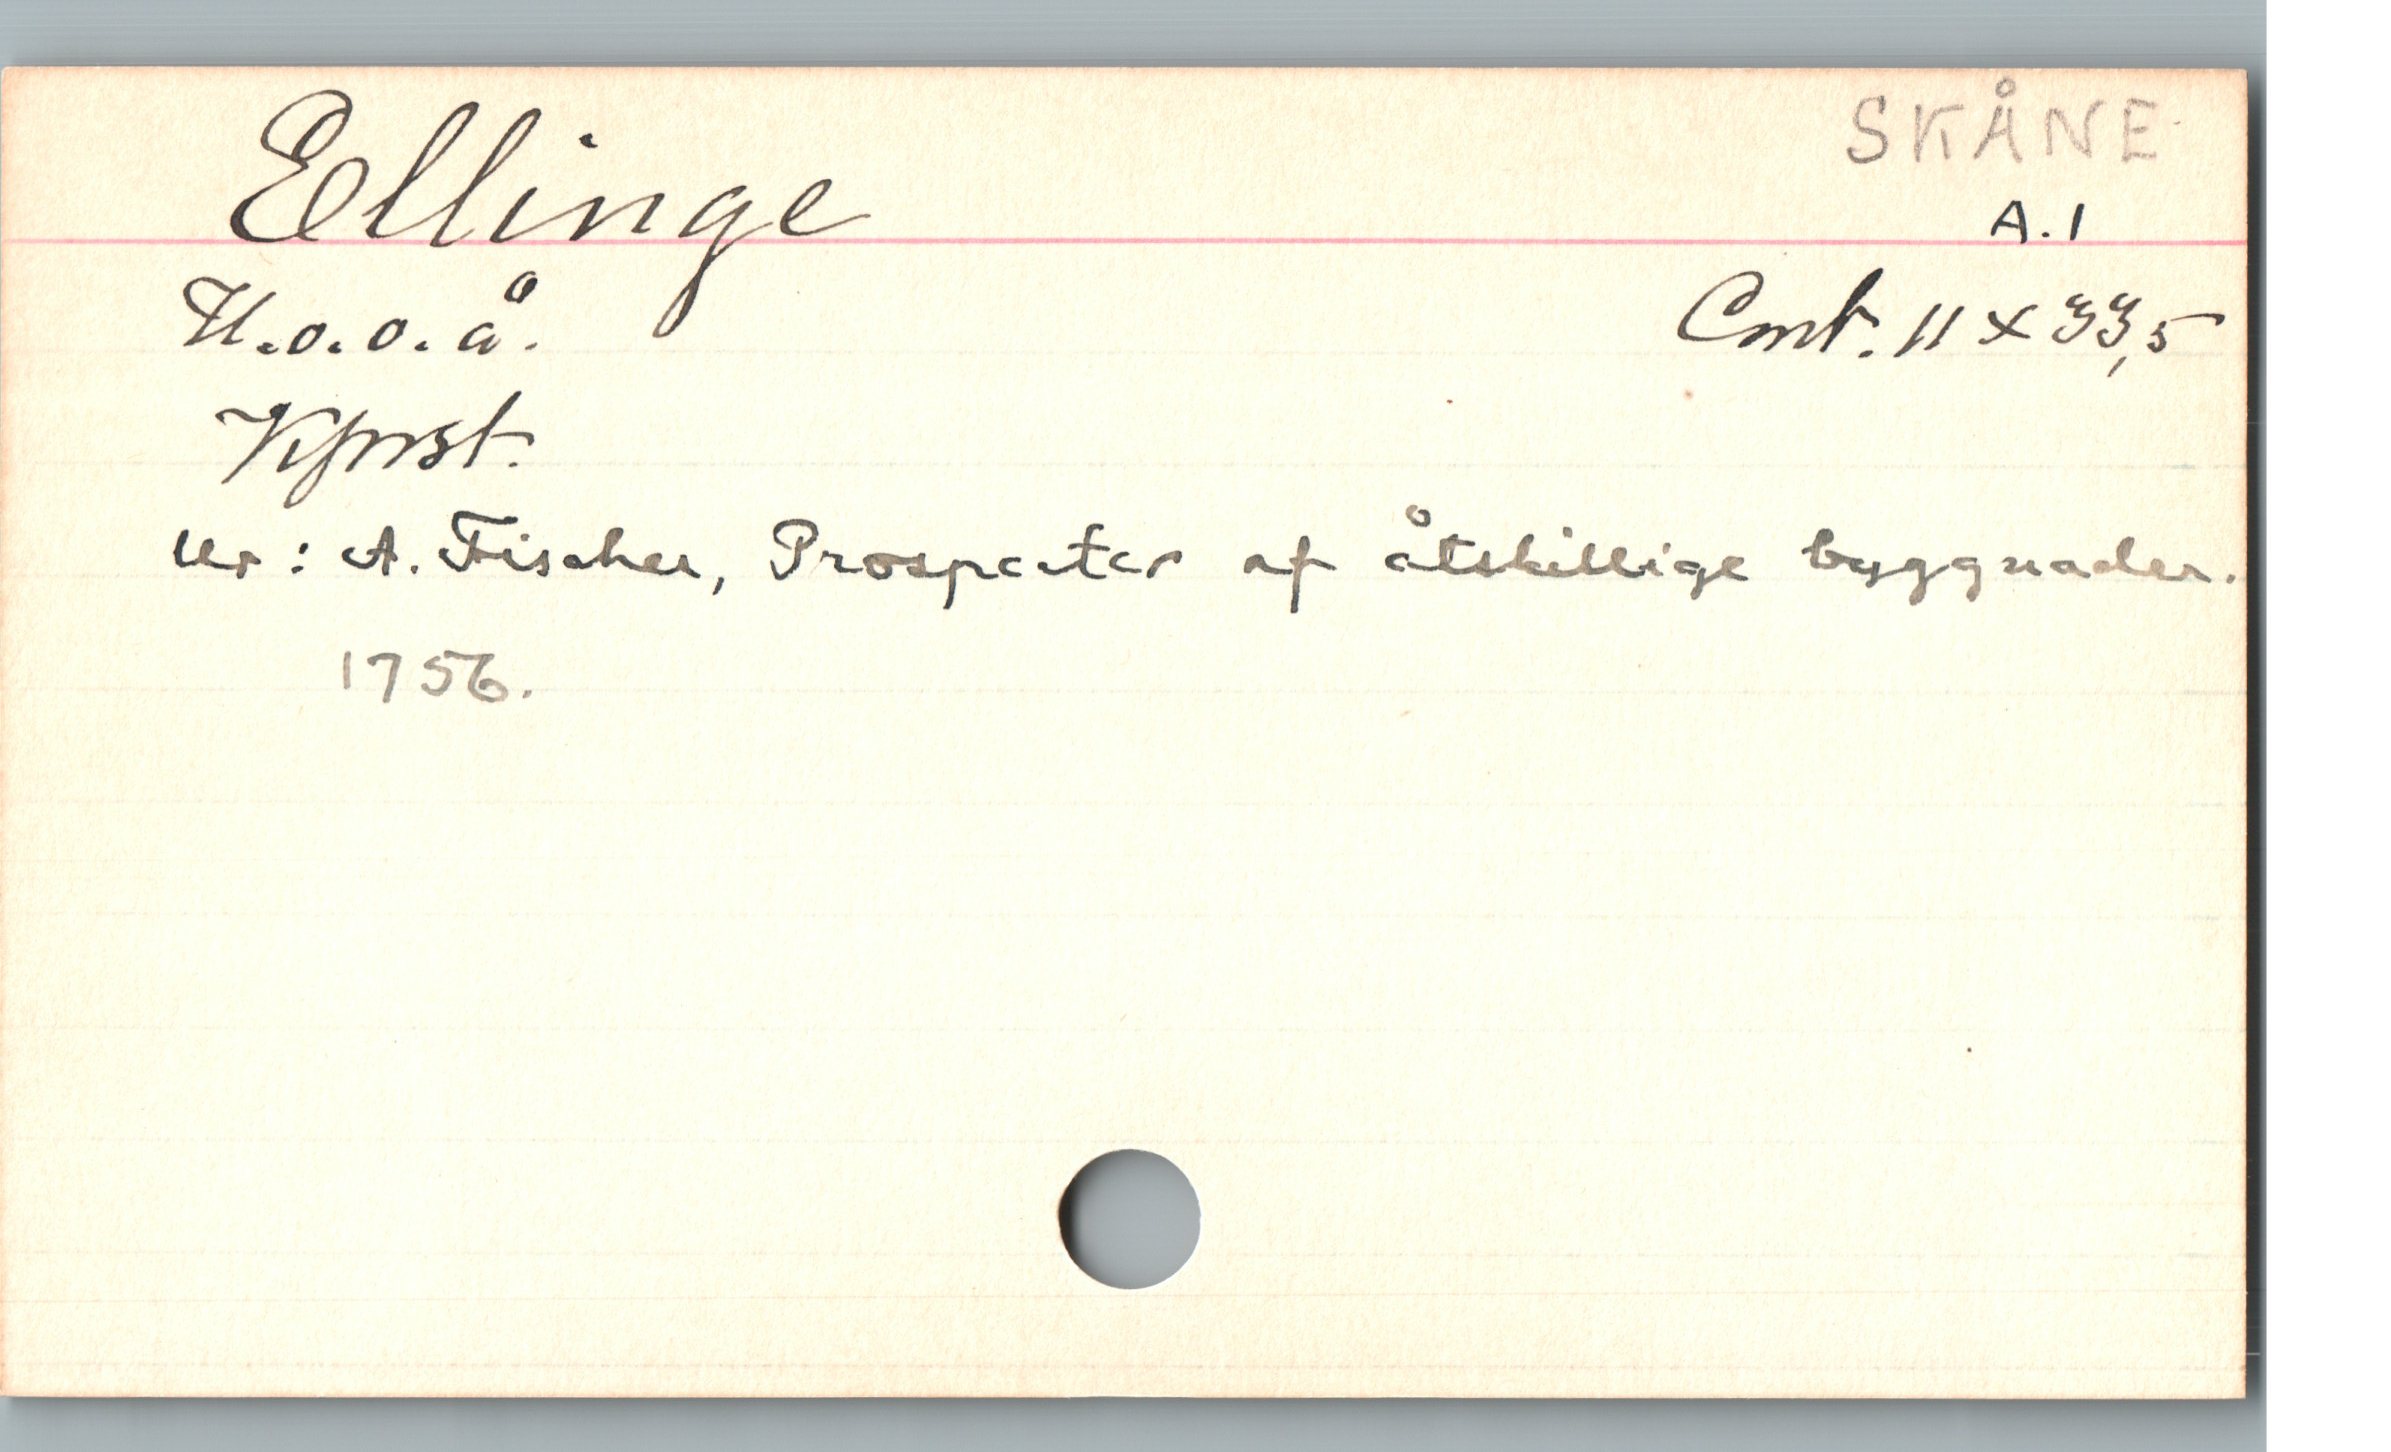 SKÅNE
Ellinge
A.1
U.o.o.å.
Cmt. 11 x 33,5
Kprst.
Ur: A. Fischer, Prospecter af åtskillige byggnader.
1756.